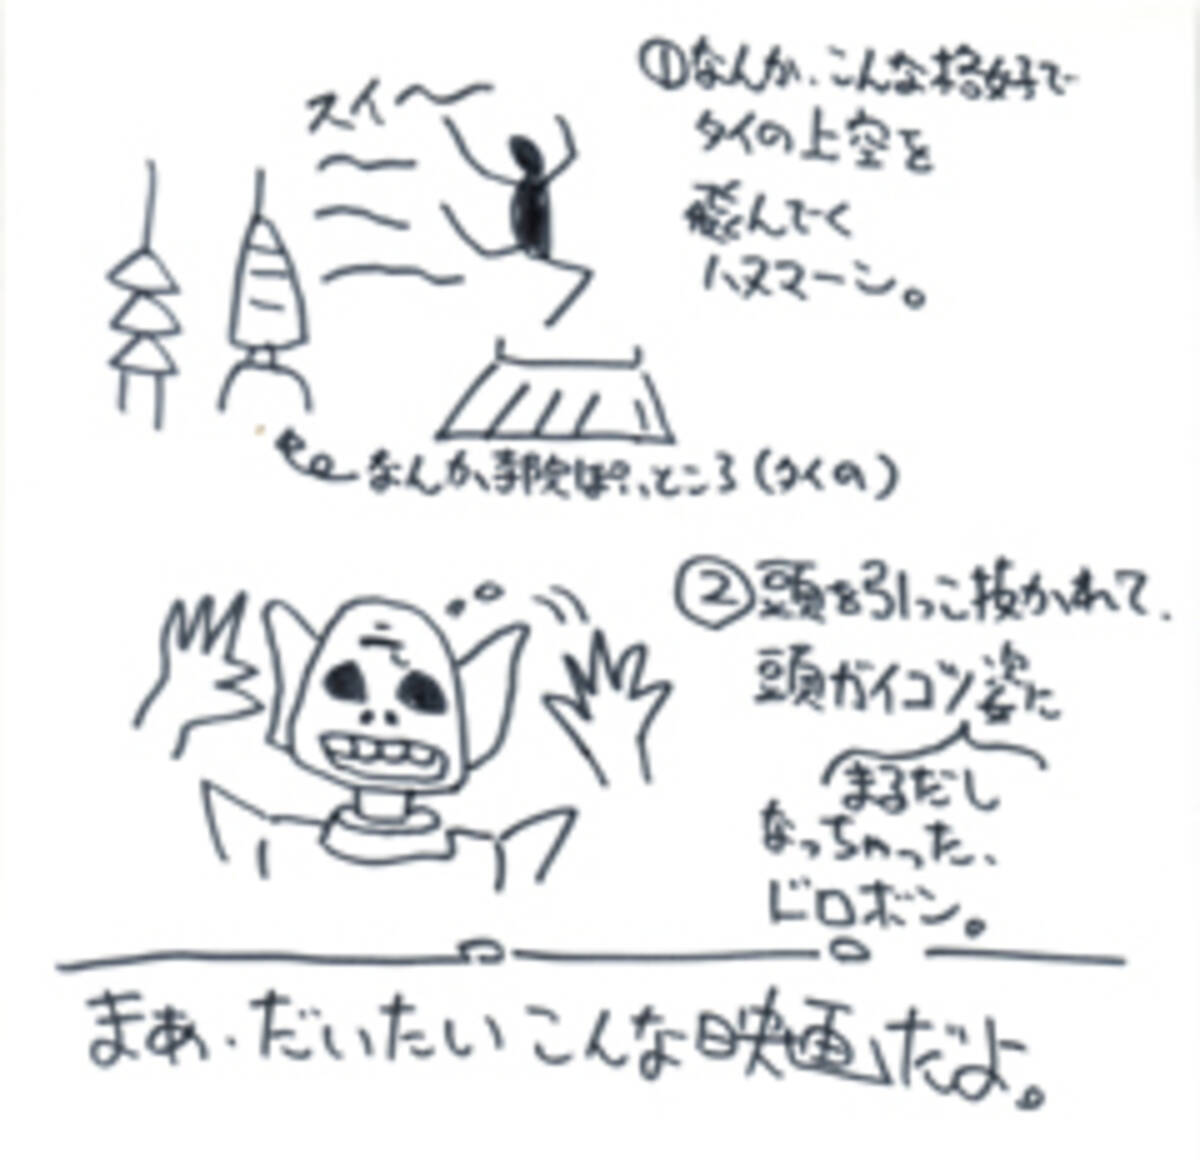 スイ〜
①なんか、こんな格好で
タイの上空を
飛んでく
ハヌマーン。
なんか、寺院ぽい、ところ(タイの)
②頭を引っこ抜かれて、
頭ガイコツ姿に
まるだし
なっちゃった、
ドロボン。
まあ、だいたいこんな映画だよ。